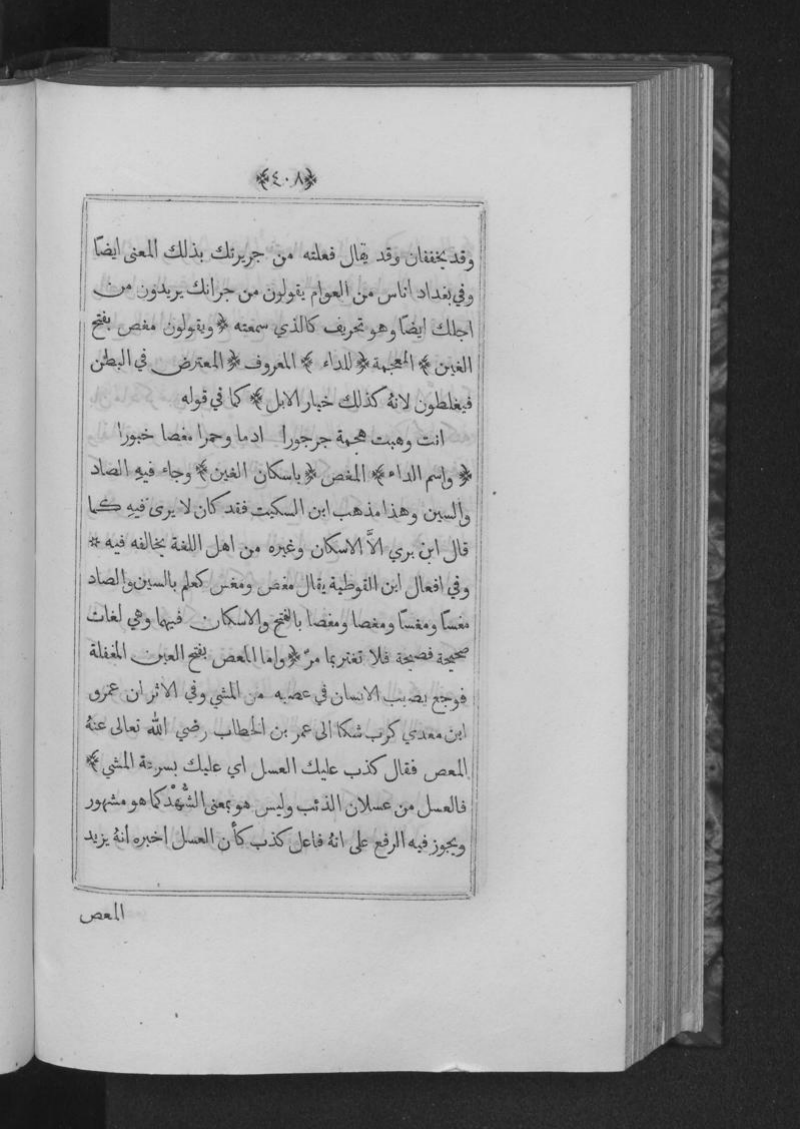 ﴿٤٠٨﴾
وقد يخففان وقد يقال فعلته من جريرتك بذلك المعنى ايضًا
وفي بغداد اناس من العوام يقولون من جرانك يريدون من
اجلك ايضًا وهو تحريف كالذي سمعته ﴿ ويقولون مغص بفتح
الغين ﴾ المعجمة ﴿ للداء ﴾ المعروف ﴿ المعترض في البطن
فيغلطون لانهُ كذلك خيار الابل ﴾ كما في قوله
انت وهبت هجمة جرجورا ادما وحمرا مغصا خبورا
﴿ واسم الداء ﴾ المغص ﴿ باسكان الغين ﴾ وجاء فيهِ الصاد
والسين وهذا مذهب ابن السكيت فقد كان لا يرى فيهِ كما
قال ابن بري الاَّ الاسكان وغيره من اهل اللغة يخالفه فيه *
وفي افعال ابن القوطية يقال مغص ومغس كعلم بالسين والصاد
مغسًا ومغسًا ومغصا ومغصا بالفتح والاسكان فيهما وهي لغات
صحيحة فصيحة فلا تغتر بما مرّ ﴿ واما المعص بفتح العين المغفلة
فوجع يصيب الانسان في عصبه من المشي وفي الاثر ان عمرو
ابن معدي كرب شكا الى عمر بن الخطاب رضي الله تعالى عنهُ
المعص فقال كذب عليك العسل اي عليك بسرعة المشي ﴾
فالعسل من عسلان الذئب وليس هو بمعنى الشُّهْد كما هو مشهور
ويجوز فيه الرفع على انهُ فاعل كذب كأن العسل اخبره انهُ يزيد
المعص